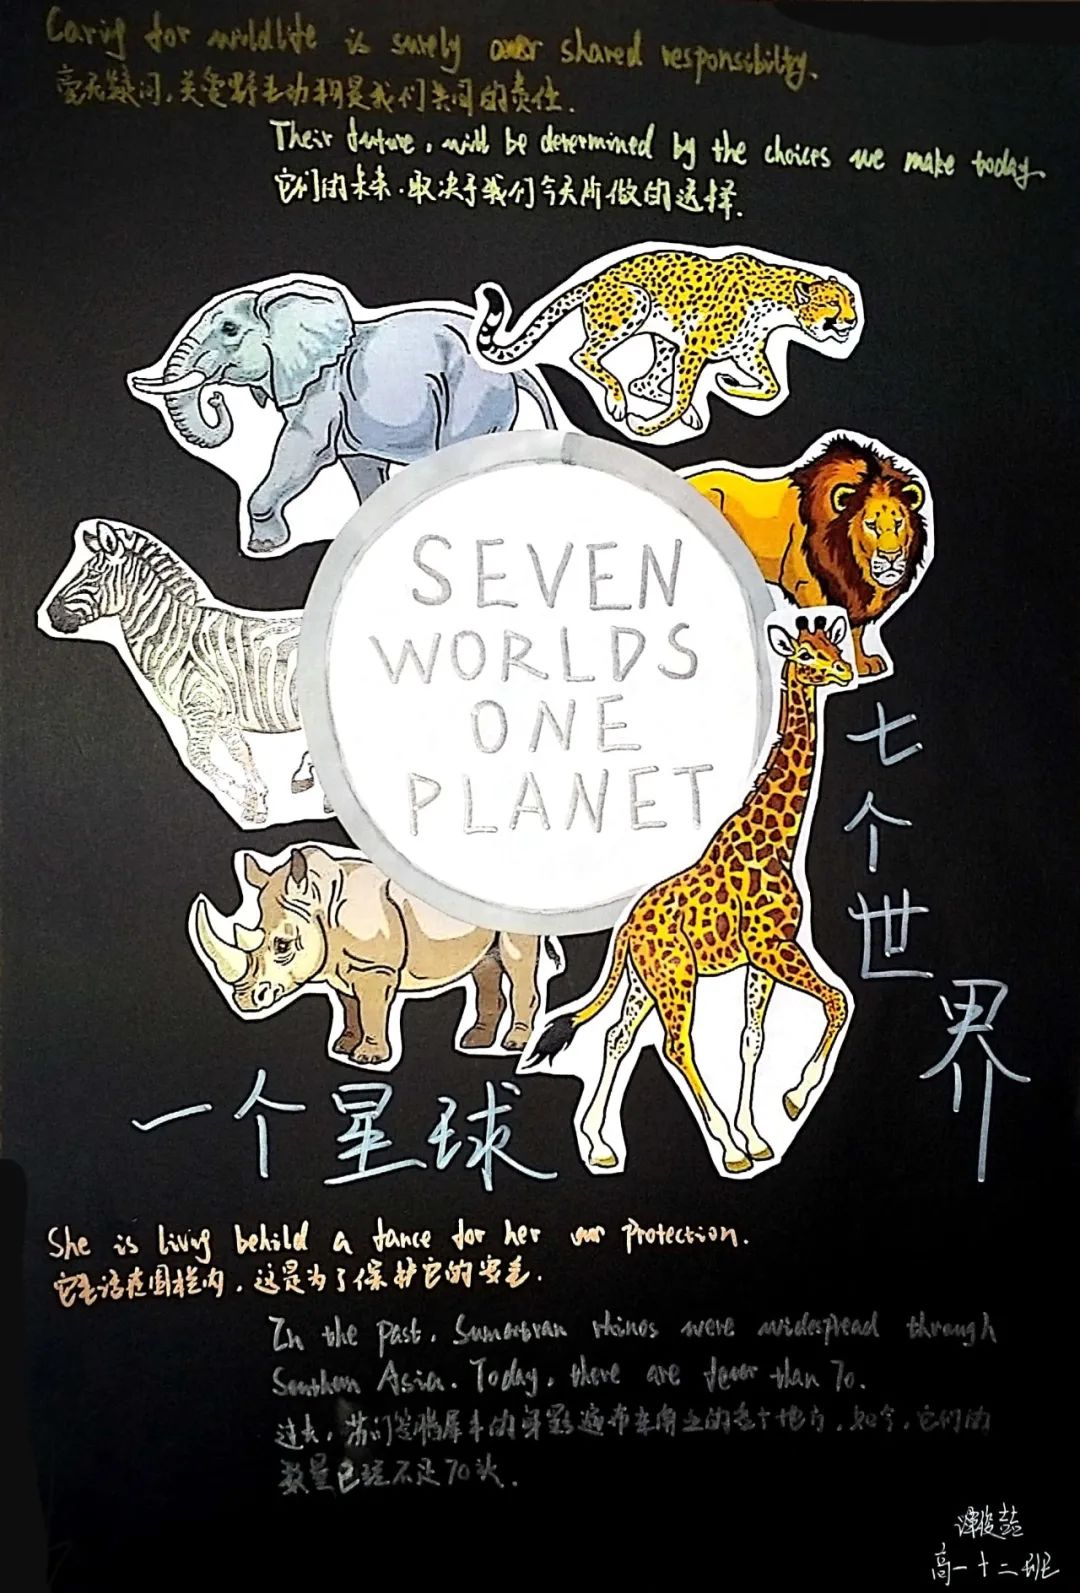 Caring for wildlife is surely our shared responsibilty.
毫无疑问,关爱野生动物是我们共同的责任.
Their future, will be determined by the choices we make today.
它们的未来,取决于我们今天所做的选择.
SEVEN
WORLDS
ONE
PLANET
七个世界
一个星球
She is living behild a fance for her own protection.
它生活在围栏内,这是为了保护它的安全.
In the past, Sumatran rhinos were widespread through
Southern Asia. Today, there are fewer than 70.
过去,苏门答腊犀牛的身影遍布东南亚的各个地方,如今,它们的
数量已经不足70头.
高一十二班